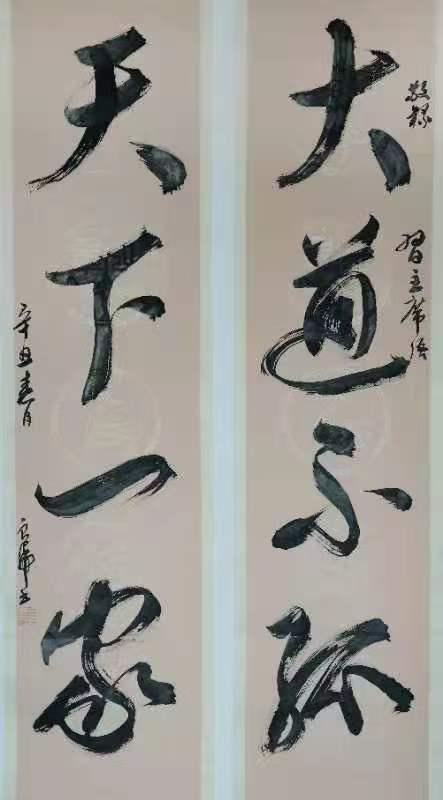 敬録
大道不孤
習主席語
天下一家
辛丑春月